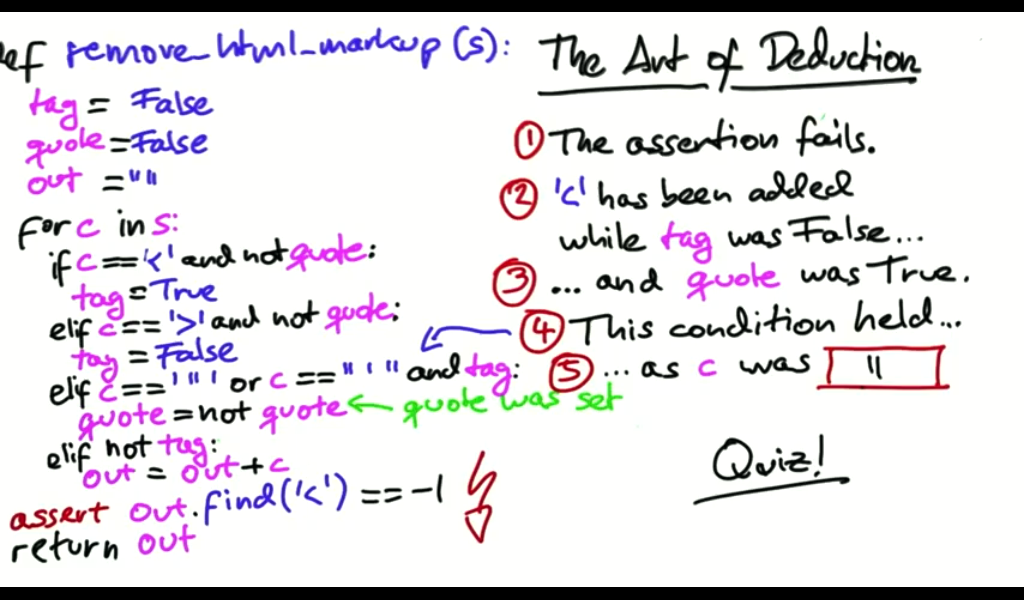 ef remove_html_markup (s):
tag = False
quote = False
out = ""
for c in s:
if c == '<' and not quote:
tag = True
elif c == '>' and not quote:
tag = False
elif c == '"' or c == "'" and tag:
quote = not quote ← quote was set
elif not tag:
out = out + c
assert out.find('<') == -1
return out
The Art of Deduction
① The assertion fails.
② '<' has been added
while tag was False...
③ ... and quote was True.
④ This condition held...
⑤ ... as c was "
Quiz!